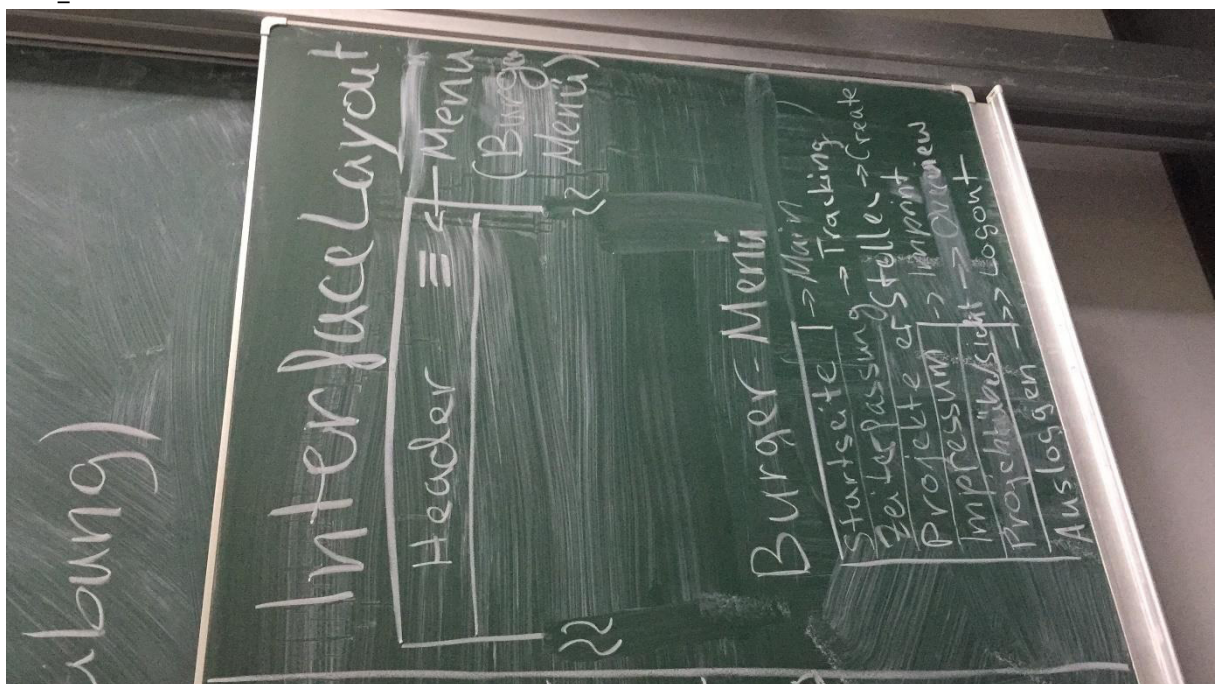 Interface Layout
Header ≡ ← Menu
(Burger
Menü)
Burger-Menü
Startseite -> Main
Zeiterfassung -> Tracking
Projekte erstellen -> Create
Impressum -> Imprint
Projektübersicht -> Overview
Ausloggen -> Logout
bung)